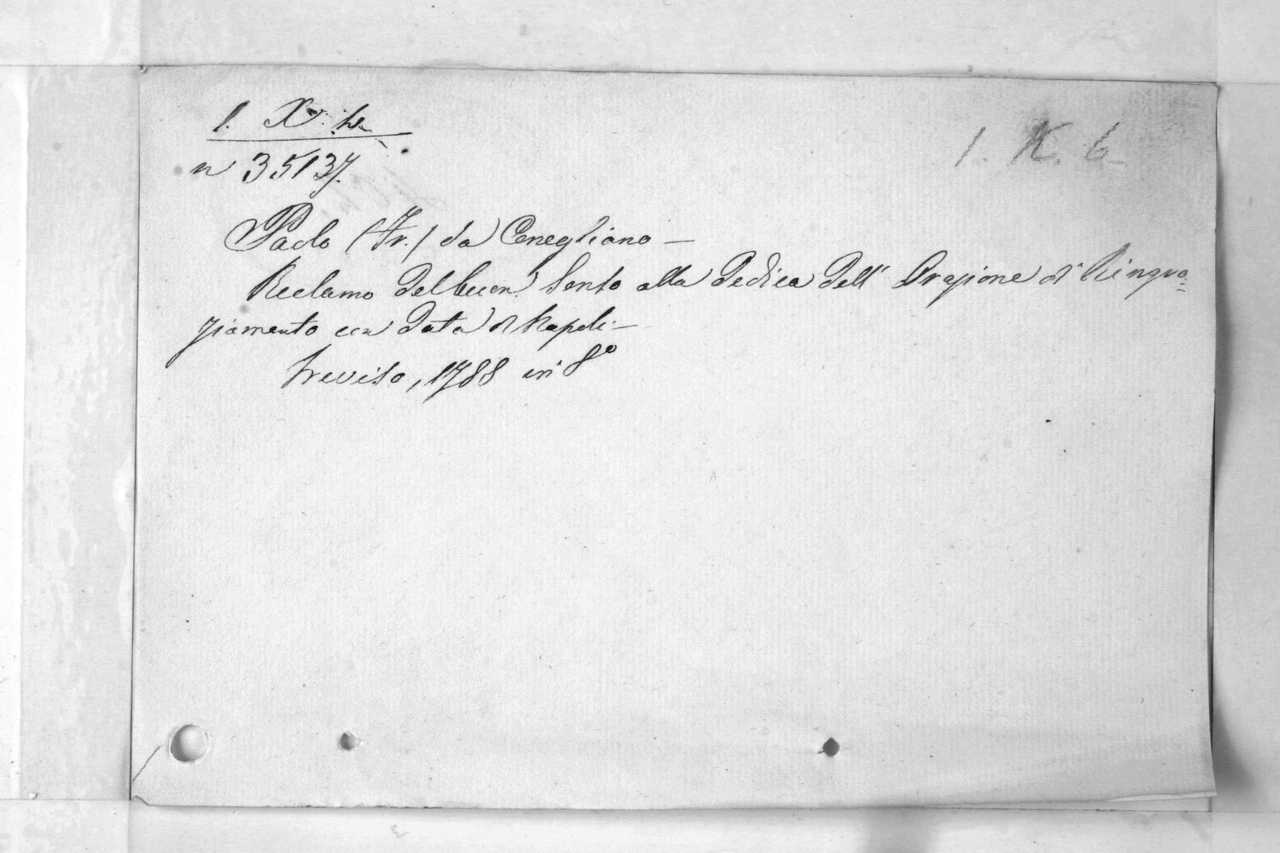 n 35137.
1. K. 6
Paolo (Fr.) da Conegliano —
Reclamo del buon Senso alla Dedica dell' Orazione di Ringra=
ziamento con data di Napoli —
Treviso, 1788 in 8º